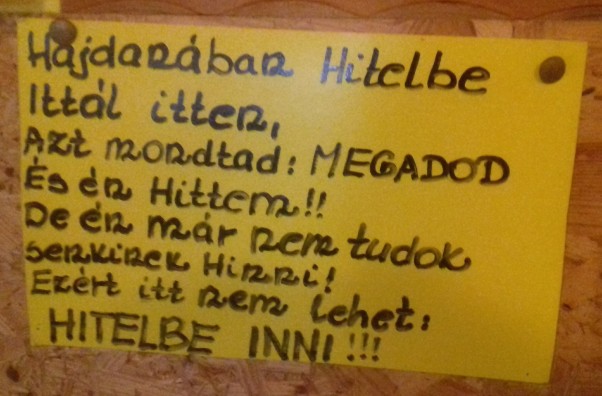 Hajdanában Hitelbe
Ittál itten,
Azt mondtad: MEGADOD
És én Hittem!!
De én már nem tudok
senkinek Hinni!
Ezért itt nem lehet:
HITELBE INNI!!!